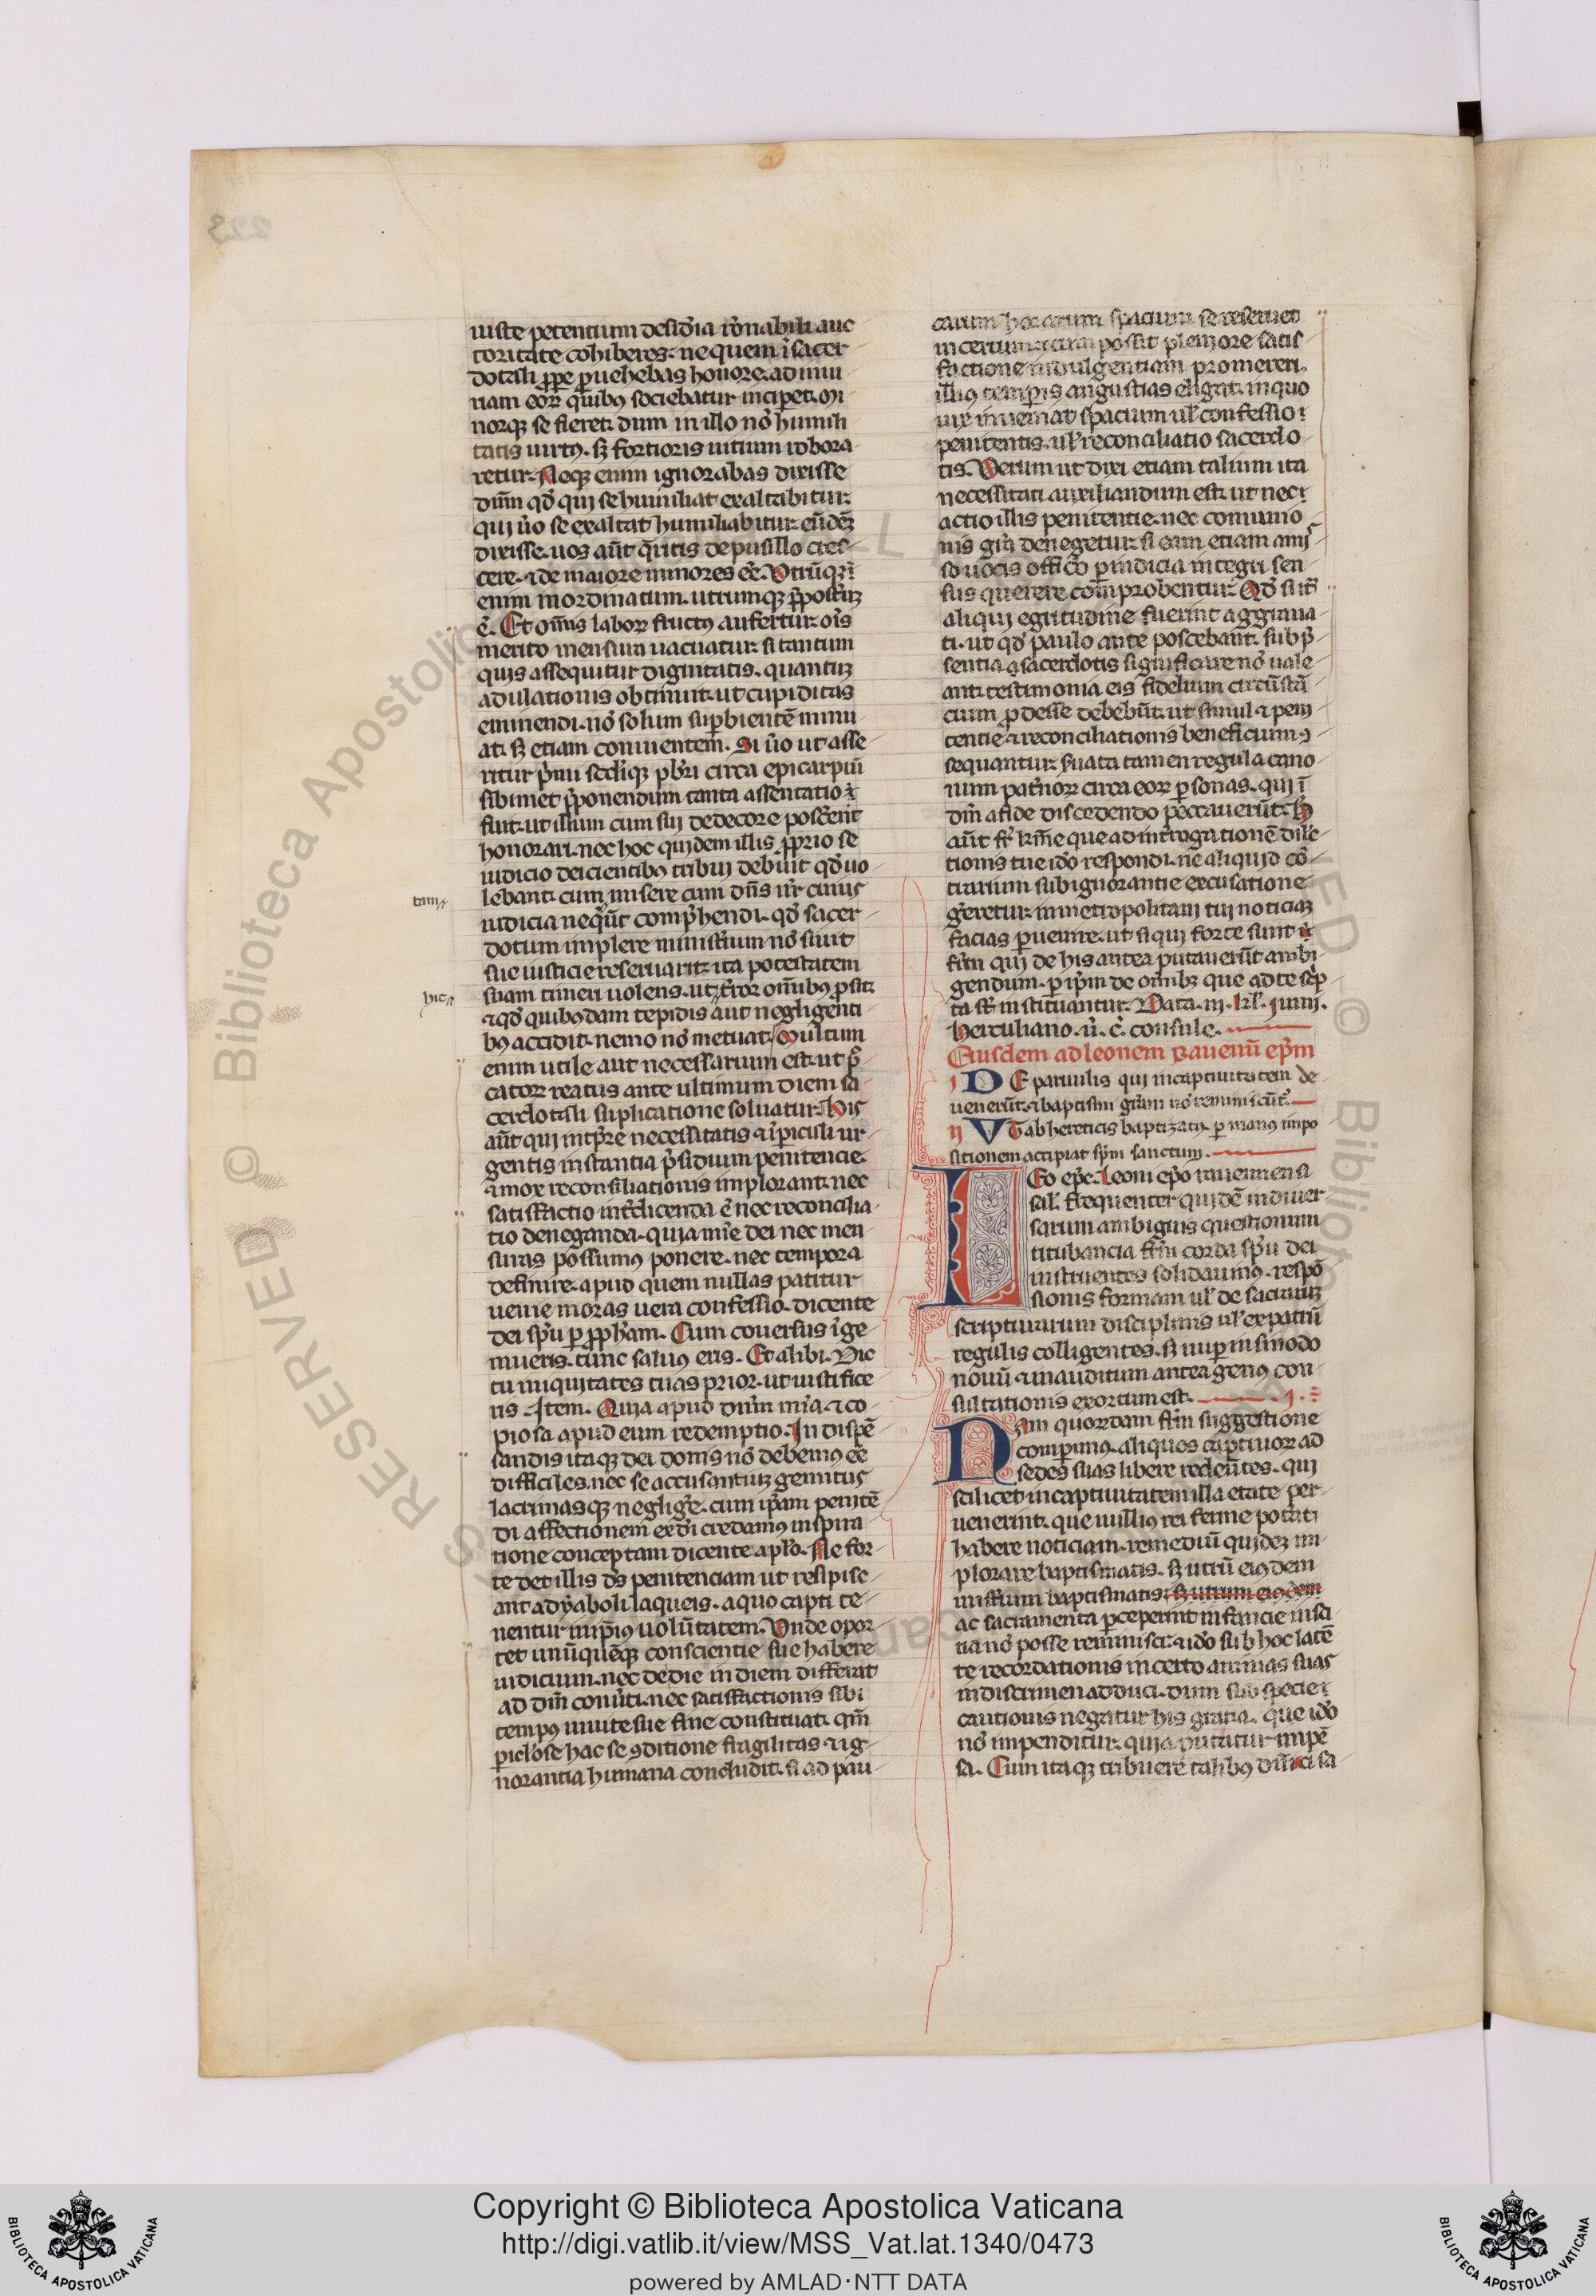 iuste petentium desid̾ia rōnabili auc
toritate cohiberes. ne quem ī sacer
dotali ꝓpe ꝓuehebas honore. ad iniu
riam eoꝝ quibꝰ sociebatur inciperet. Mi
norqꝫ se fieret. dum in illo nō humili
tatis uirtꝰ. sꝫ fortioris uitium robora
retur. Neqꝫ enim ignorabas dixisse
dūm qd̾ qui se humiliat exaltabitur.
qui u̾o se exaltat humiliabitur. eūdeꝫ
dixisse. uos aūt q̄ritis de pusillo cres
cere. ⁊ de maiore minores eē. Vtrūqꝫ
enim inordinatum. utrumqꝫ p̄postuꝫ
ē. Et om̄is laboꝝ fructꝰ aufertur. oīs
merito mensura uacuatur. si tantum
quis assequitur dignitatis. quantuꝫ
adulationis obtinuit. ut cupiditas
eminendi. nō solum suꝑbientē minu
at. sꝫ etiam conniuentem. Si u̾o ut asse
ritur p̾mi scd̾iqꝫ pb̾ri circa epicarpiū
sibimet p̄ponendum tanta assentatio
fuit. ut illum cum sui dedecore poscerent
honorari. nec hoc quidem illis ꝓprio se
iudicio deicientibꝰ tribui debuit qd̾ uo
lebant. cum misere cum dn̄s nr̄ cuius
iudicia neq̄ūt comp̾hendi. qd̾ sacer
dotum implere minist̾ium nō siuit
sue iusticie reseruarit. ita potestatem
suam timeri uolens. ut t̾ror om̄ibus ꝓsit.
⁊ qd̾ quibꝰdam tepidis aut negligenti
bꝰ accidit. nemo nō metuat. Multum
enim utile aut necessarium est. ut p̄
catoꝝ reatus ante ultimum diem sa
cerdotali suplicatione soluatur. His
aūt qui intp̾re necessitatis ⁊ ī periculi ur
gentis instantia p̾sidium penitencie
⁊ mox reconsiliationis implorant. nec
satisfactio int̾dicenda ē nec reconcilia
tio deneganda. quia mīe dei nec men
suras possumus ponere. nec tempora
definire. apud quem nullas patitur
uenie moras uera confessio. dicente
dei sp̄u per ꝓph̄am. Cum couersus īge
mueris. tunc saluꝰ eris. Et alibi. Dic
tu iniquitates tuas prior. ut iustifice
ris. Item. Quia apud dūm mīa. ⁊ co
piosa apud eum redemptio. In dispē
sandis itaqꝫ dei donis nō debemus eē
difficiles. nec se accusantiuꝫ gemitus
lacrimasqꝫ neglig̾e. cum ip̄am penitē
di affectionem ex dī credamꝰ inspira
tione conceptam dicente ap̄lo. Ne for
te det illis ds̄ penitenciam ut resipisc
ant a dyaboli laqueis. a quo capti te
nentur ip̄iꝰ uolūtatem. Vnde opor
tet unūquēqꝫ conscientie sue habere
iudicium. nec de die in diem differat
ad dm̄ conu̾ti. nec satisfactionis sibi
tempꝰ in uite sue fine constituat. qm̄
ꝑiclose hac se 9ditione fragilitas ⁊ ig
norantia humana concludit. si ad pau
tam
hic
carum horarum spacium se reseruet
incertum. ⁊ cum possit pleniore satis
factione indulgentiam promereri.
illiꝰ temporis angustias eligat. in quo
uix inueniat spacium ul̾ confessio
penitentis. ul̾ reconciliatio sacerdo
tis. Verum ut dixi etiam talium ita
necessitati auxiliandum est. ut nec
actio illis penitentie. nec comunio
nis gr̄a denegetur. si eam etiam amis
so uocis officō ꝑ indicia integri sen
sus querere comprobentur. Qd̾ si aūt
aliqui egritudine fuerint aggraua
ti. ut qd̾ paulo ante poscebant. sub p̾
sentia a sacerdotis significare nō uale
ant. testimonia eis fidelium circūstā
cium ꝓdesse debebūt. ut simul ⁊ peni
tentie ⁊ reconciliationis beneficium
sequantur. suata tamen regula cano
num pat̾noꝝ circa eoꝝ ꝑsonas. qui ī
dm̄ a fide discedendo peccauerūt. h
aūt fr̄ k̄me que ad int̾rogationē dile
tionis tue id̾o respondi. ne aliquid cō
trarium sub ignorantie excusatione
gereretur. in metropolitani tui noticiaꝫ
facias ꝑuenire. ut si qui forte sunt
fr̄m qui de his antea putauerūt ambi
gendum. ꝑ ip̄m de om̄ibꝫ que ad te sc̾p
ta sūt instituantur. Data. iii. kl̾. iunii.
Herculiano. u̾. c̾. consule.
Eiusdem ad leonem Rauenn̄ ep̄m
i DE paruulis qui in captiuitatem de
uenerūt. ⁊ baptismi gr̄am nō reminiscūt̾.
ij VT ab hereticis baptizatꝰ. ꝑ manꝰ impo
sitionem accipiat sp̄m sanctum.
LEo ep̄c. Leoni ep̄o rauennensi
sal̾. Frequenter quidē in diuer
sarum ambiguis questionum
titubancia fr̄m corda sp̄u dei
instruentes solidauimꝰ. respō
sionis formam ul̾ de sacraruꝫ
scripturarum disciplinis ul̾ ex patrū
regulis colligentes. sꝫ nuꝑ in sinodo
nouū ⁊ inauditum antea genꝰ con
sultationis exortum est. i.
Nam quorūdam fr̄m suggestione
comperimꝰ. aliquos captiuoꝝ ad
sedes suas libere redeūtes. qui
scilicet in captiuitatem illa etate per
uenerint. que nulliꝰ rei firme potat̾
habere noticiam. remediū quideꝫ im
plorare baptismatis. sꝫ utrū eiꝰdem
mist̾ium baptismatis sꝫ utrum eiꝰdem
ac sacramenta ꝑceperint infancie insci
tia nō posse reminisci. ⁊ id̾o sub hoc latē
te recordationis incerto animas suas
in discrimen adduci. dum sub specie
cautionis negatur his gratia. que id̾o
nō impenditur. quia putatur impē
sa. Cum itaqꝫ tribuere talibꝰ dn̄ici sa
Copyright © Biblioteca Apostolica Vaticana
http://digi.vatlib.it/view/MSS_Vat.lat.1340/0473
powered by AMLAD·NTT DATA